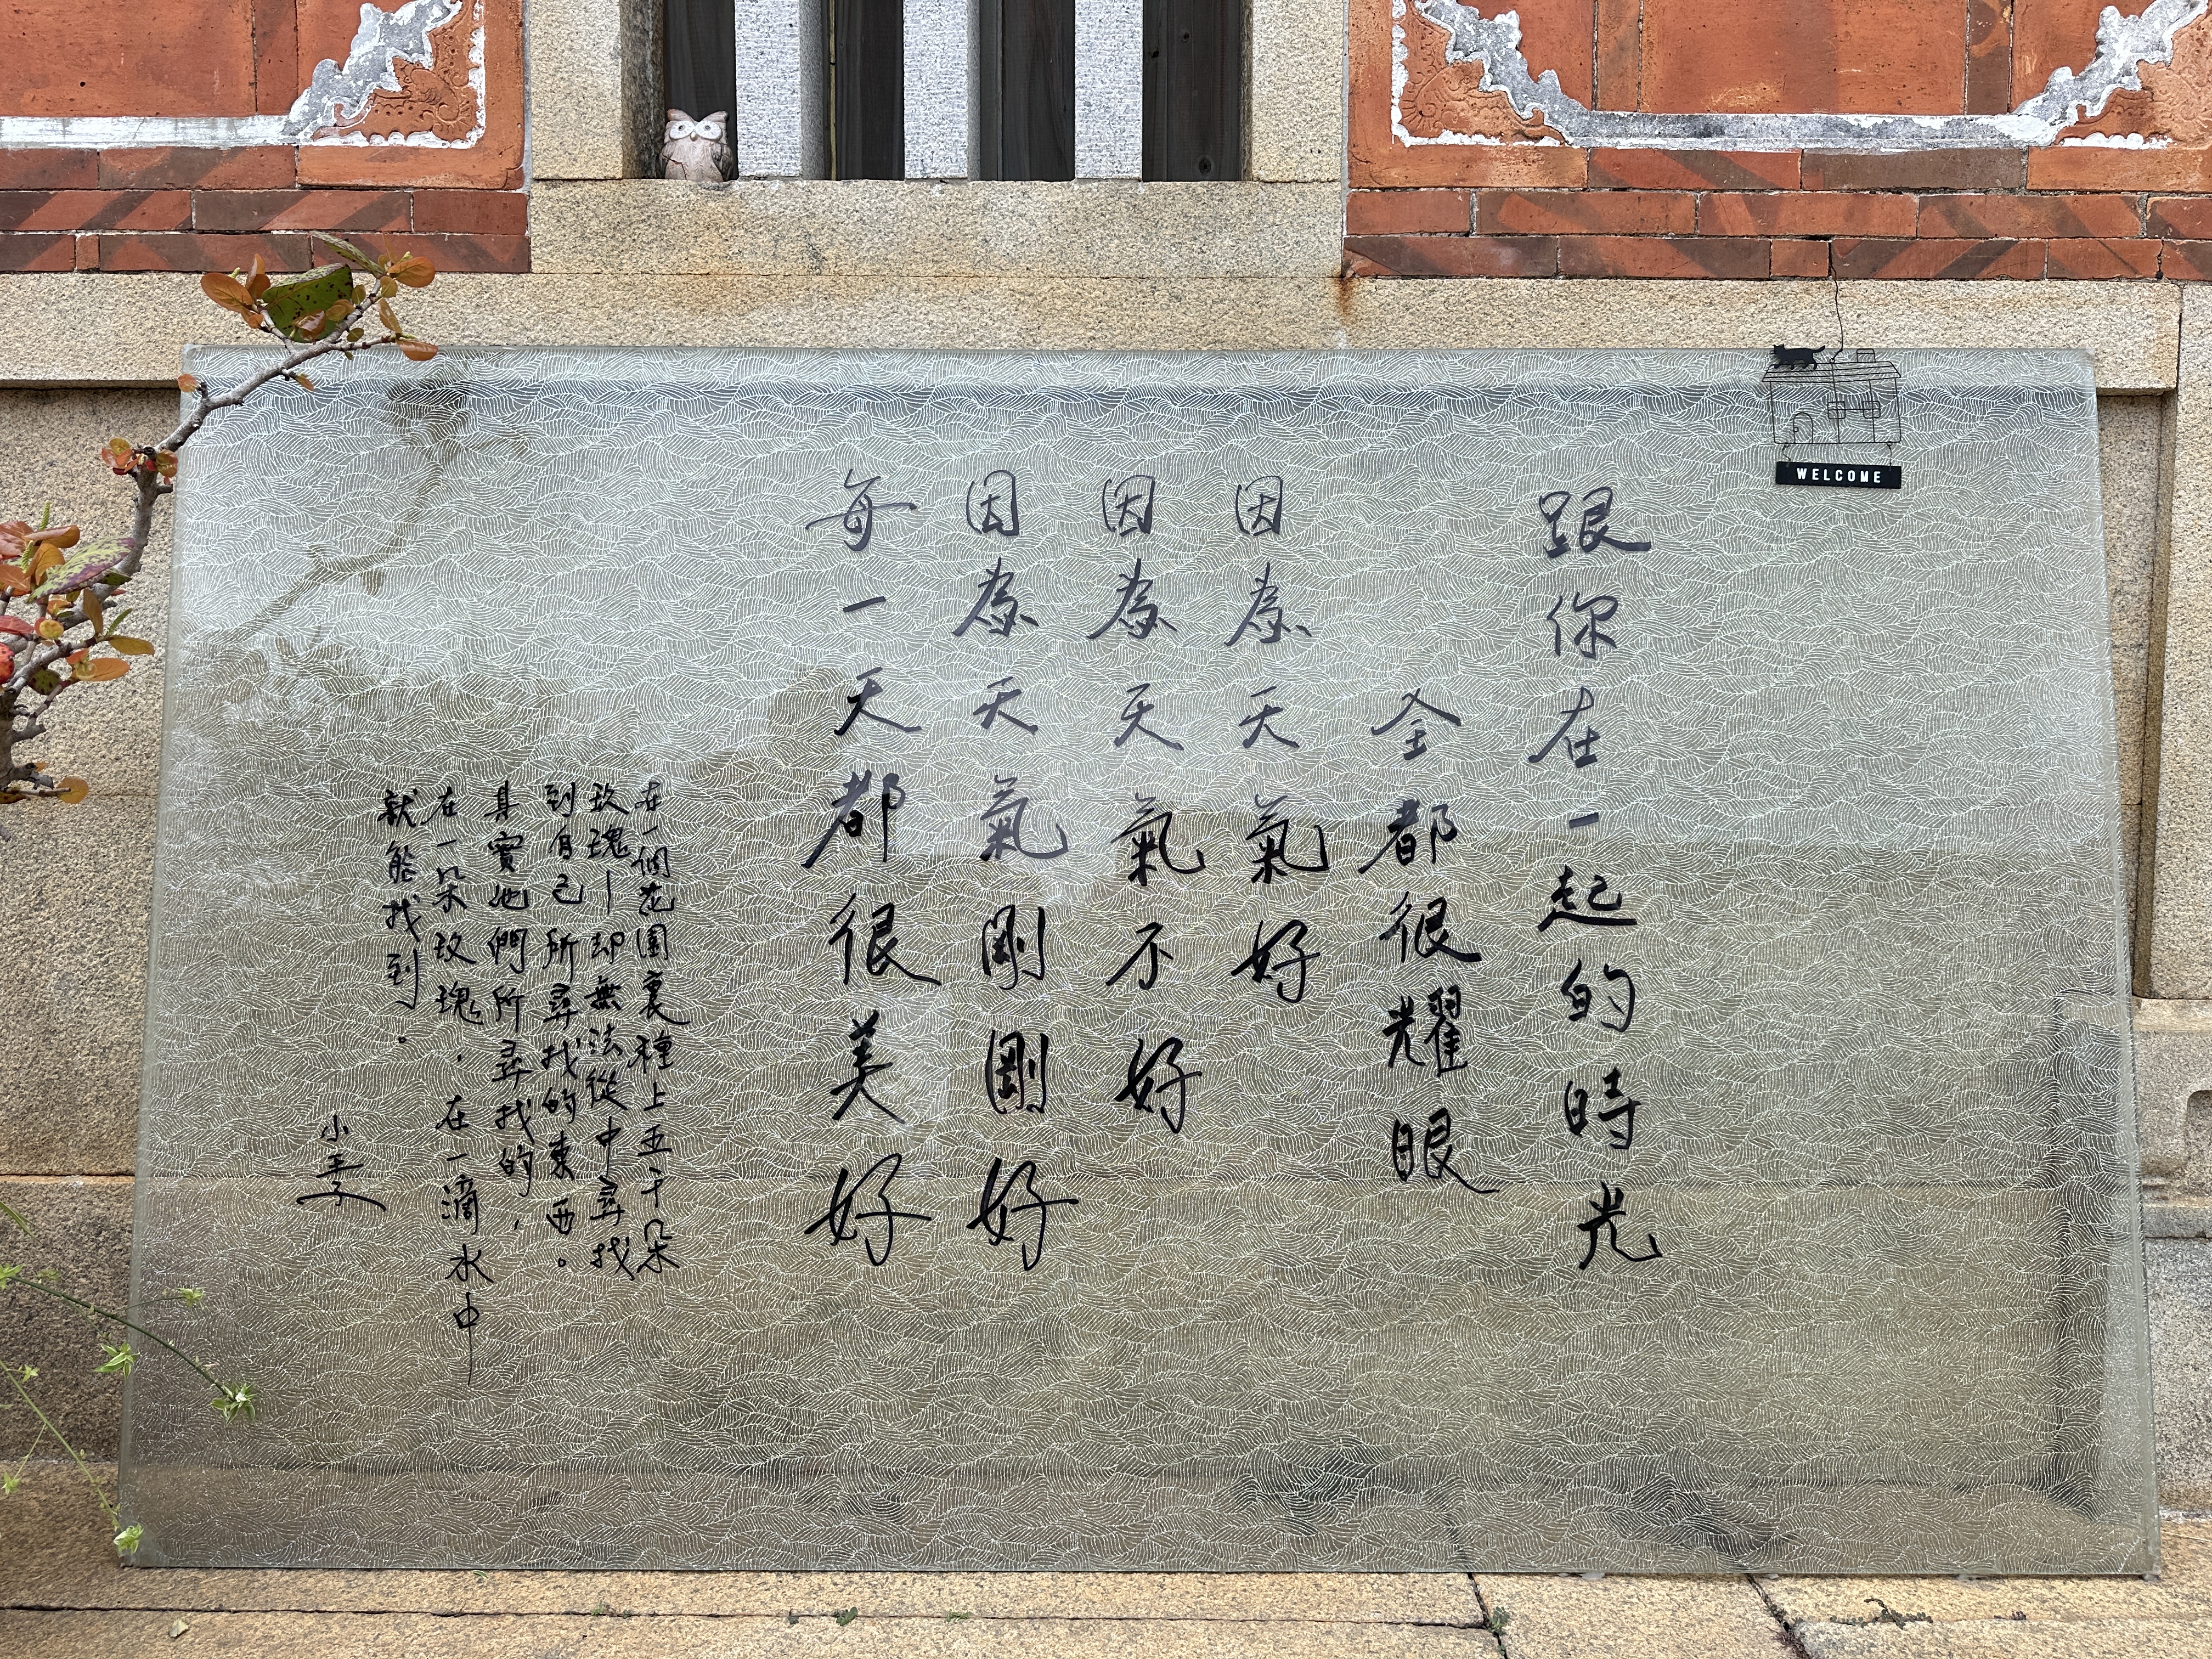 WELCOME
跟你在一起的時光
全都很耀眼
因為天氣好
因為天氣不好
因為天氣剛剛好
每一天都很美好
在一個花園裏種上五千朵
玫瑰—却無法從中尋找
到自己所尋找的東西。
其實他們所尋找的,
在一朵玫瑰,在一滴水中
就能找到。
小王子